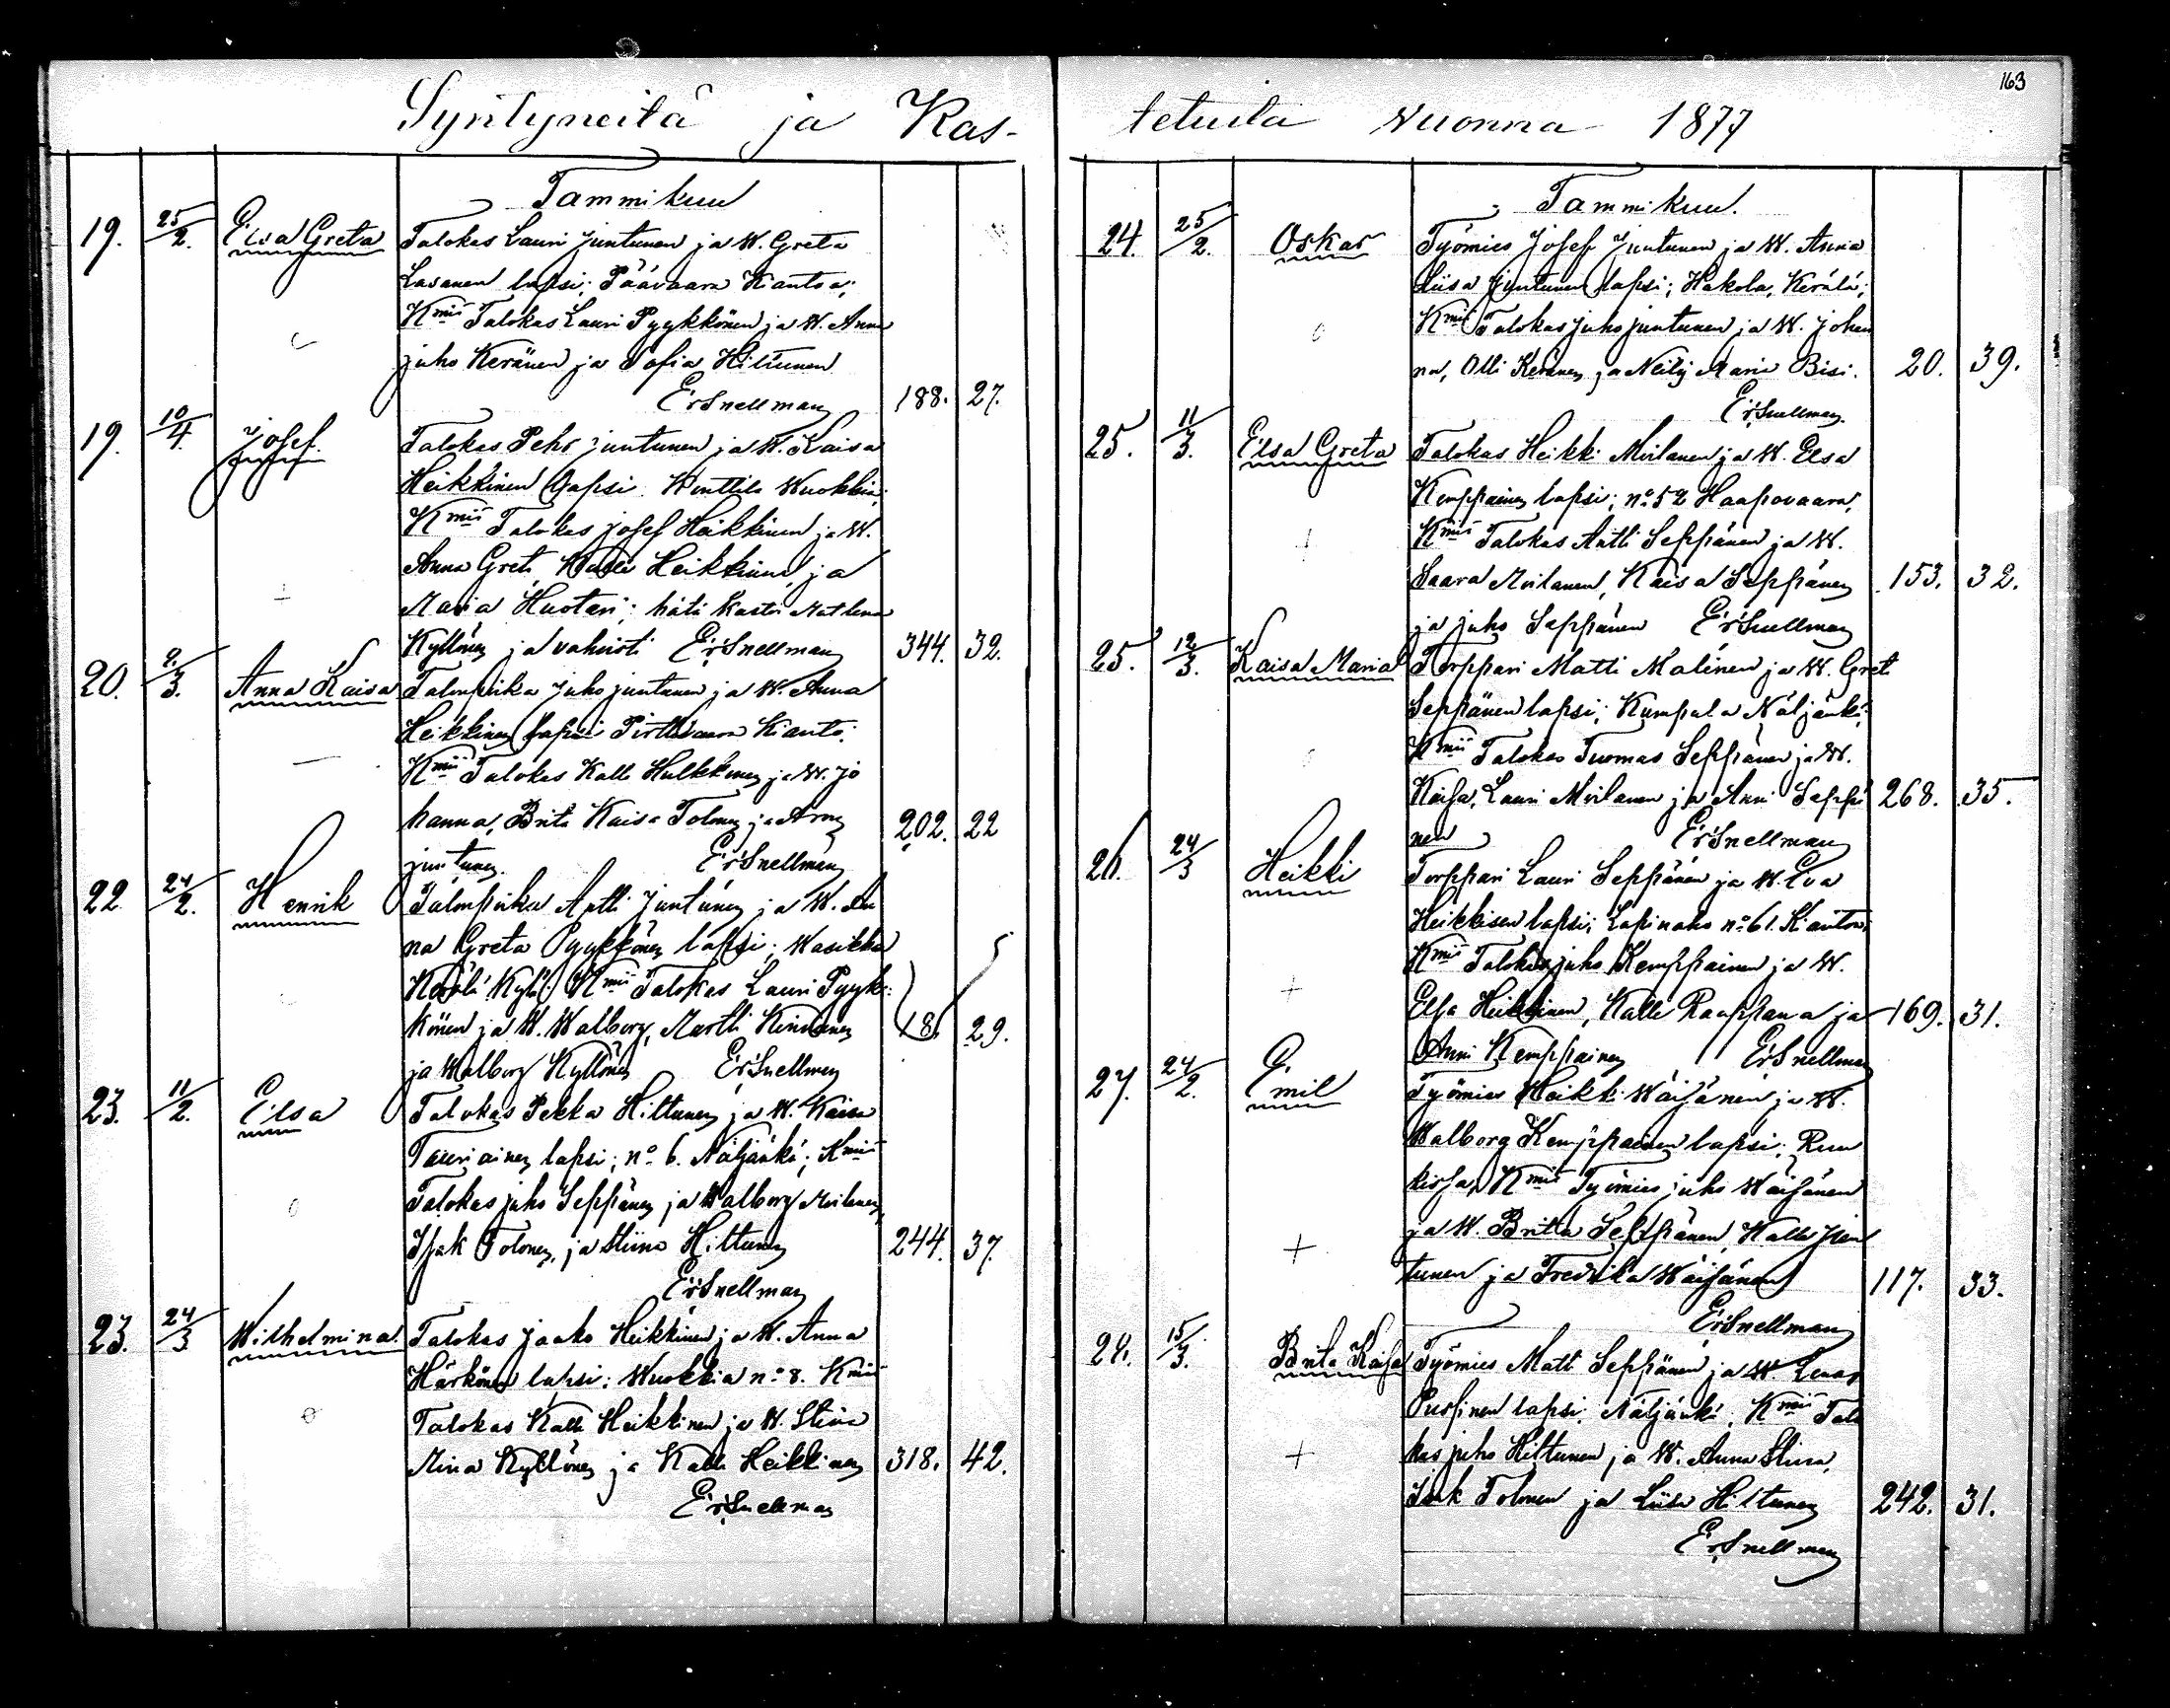 163
Syntyneitä ja Kas-
tetuita vuonna 1877
Tammikuu
19. 25/2. Elsa Greta Talokas Lauri Juntunen ja W. Greta
Lasanen lapsi; Päävaara Kianta;
Kmit Talokas Lauri Pyykkönen ja W. Anna
juho Keränen ja Sofia Hiltunen
ErSnellman 188. 27.
19. 10/4. Josef Talokas Pehr juntunen ja W. Kaisa
Heikkinen lapsi Wuokkia;
Kmit Talokas josef Heikkinen ja W.
Anna Greta, Heikkinen ja
Maria Huotari; hätä kastoi
Kyllönen ja vahvisti ErSnellman 344. 32.
20. 2/3. Anna Kaisa Talonpoika juho juntunen ja W. Anna
Heikkinen lapsi Pirttivaara Kianta;
Kmit Talokas Kalle Hulkkonen ja W. jo
hanna, Brita Kaisa Tolonen ja
juntunen. ErSnellman 202. 22
22 24/2. Henrik Talonpoika Antti Juntunen ja W. An
na Greta Pyykkönen lapsi; Wasikka
Kerälä Kylä; Kmit Talokas Lauri Pyyk-
könen ja W. Walborg, Martti
ja Walborg Kyllönen ErSnellman 18. 29.
23. 11/2. Elsa Talokas Pekka Hiltunen ja W. Kaisa
Tauriainen lapsi; no 6. Näljänkä; Kmit
Talokas juho Seppänen ja Walborg Moilanen,
Isak Tolonen, ja Stiina Hiltunen 244. 37.
ErSnellman
23. 24/3 Wilhelmina. Talokas jaako Heikkinen ja W. Anna
Härkönen lapsi; Wuokkia no 8. Kmit
Talokas Kalle Heikkinen ja W. Stina
Mina Kyllönen ja Kalle Heikkinen 318. 42.
ErSnellman
Tammikuu.
24. 25/2. Oskar Työmies Josef Juntunen ja W. Anna
Liisa Juntunen lapsi; Hakola, Kerälä;
Kmit Talokas juho juntunen ja W. johan
na, Olli Keränen ja Neity Maria Bisi. 20. 39.
ErSnellman
25. 11/3. Elsa Greta Talokas Heikki Moilanen ja W. Elsa
Kemppainen lapsi; no 52 Haapovaara,
Kmit Talokas Antti Seppänen ja W.
Saara Moilanen, Kaisa Seppänen 153. 32.
ja juho Seppänen ErSnellman
25. 12/3. Kaisa Maria Torppari Matti Malinen ja W. Greta
Seppänen lapsi; Kumpula Näljänkä;
Kmit Talokas Tuomas Seppänen ja W.
Kaisa, Lauri Moilanen ja Anni Seppä 268. 35.
nen ErSnellman
26. 24/3 Heikki Torppari Lauri Seppänen ja W. Eva
Heikkisen lapsi; Lapinaho no 61. Kianta;
Kmit Talokas juho Kemppainen ja W.
Elsa Heikkinen, Kalle Raappana ja 169. 31.
Anni Kemppainen ErSnellman
27. 24/2. Emil Työmies Heikki Wäisänen ja W.
Walborg Kemppainen lapsi; Ruu
Kmit Työmies juho Wäisänen
ja W. Britta Seppänen, Kalle Jun
tunen ja Fredrika Wäisänen 117. 33.
ErSnellman
28. 15/3. Brita Kaisa Työmies Matti Seppänen ja W. Leena
lapsi; Näljänkä; Kmit Talo
kas juho Hiltunen ja W. Anna Stina,
Isak Tolonen ja Liisa Hiltunen 242. 31.
ErSnellman